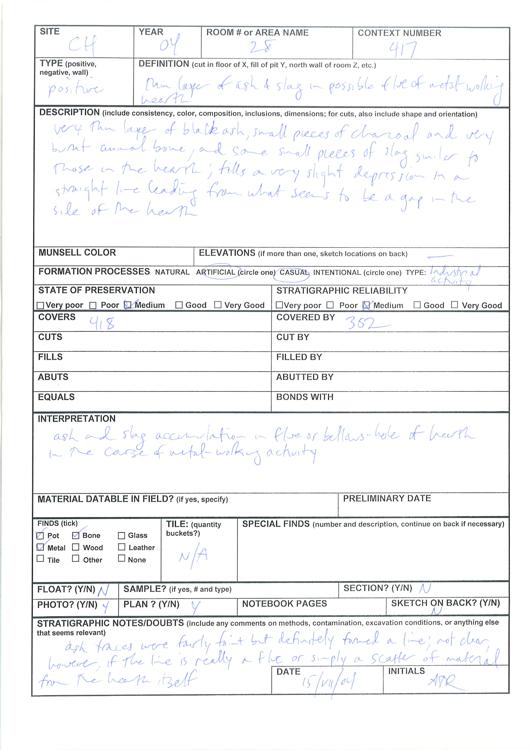 SITE YEAR ROOM # or AREA NAME CONTEXT NUMBER
CH 04 28 417
TYPE (positive, negative, wall) DEFINITION (cut in floor of X, fill of pit Y, north wall of room Z, etc.)
positive thin layer of ash & slag in possible flue of metal working
hearth
DESCRIPTION (include consistency, color, composition, inclusions, dimensions; for cuts, also include shape and orientation)
very thin layer of black ash, small pieces of charcoal and very
burnt animal bone, and some small pieces of slag similar to
those in the hearth; fills a very slight depression in a
straight line leading from what seems to be a gap in the
side of the hearth
MUNSELL COLOR ELEVATIONS (if more than one, sketch locations on back) —
FORMATION PROCESSES NATURAL ARTIFICIAL (circle one) CASUAL INTENTIONAL (circle one) TYPE: Industrial
activity
STATE OF PRESERVATION STRATIGRAPHIC RELIABILITY
Very poor Poor Medium Good Very Good Very poor Poor Medium Good Very Good
COVERS 418 COVERED BY 382
CUTS CUT BY
FILLS FILLED BY
ABUTS ABUTTED BY
EQUALS BONDS WITH
INTERPRETATION
ash and slag accumulation in flue or bellows-hole of hearth
in the course of metal-working activity
MATERIAL DATABLE IN FIELD? (if yes, specify) PRELIMINARY DATE
FINDS (tick) TILE: (quantity buckets?) SPECIAL FINDS (number and description, continue on back if necessary)
Pot Bone Glass
Metal Wood Leather N/A
Tile Other None
FLOAT? (Y/N) N SAMPLE? (if yes, # and type) SECTION? (Y/N) N
PHOTO? (Y/N) Y PLAN ? (Y/N) Y NOTEBOOK PAGES SKETCH ON BACK? (Y/N)
N
STRATIGRAPHIC NOTES/DOUBTS (include any comments on methods, contamination, excavation conditions, or anything else
that seems relevant)
ash traces were fairly faint but definitely formed a line; not clear,
however, if the line is really a flue or simply a scatter of material
from the hearth itself
DATE INITIALS
15/VII/04